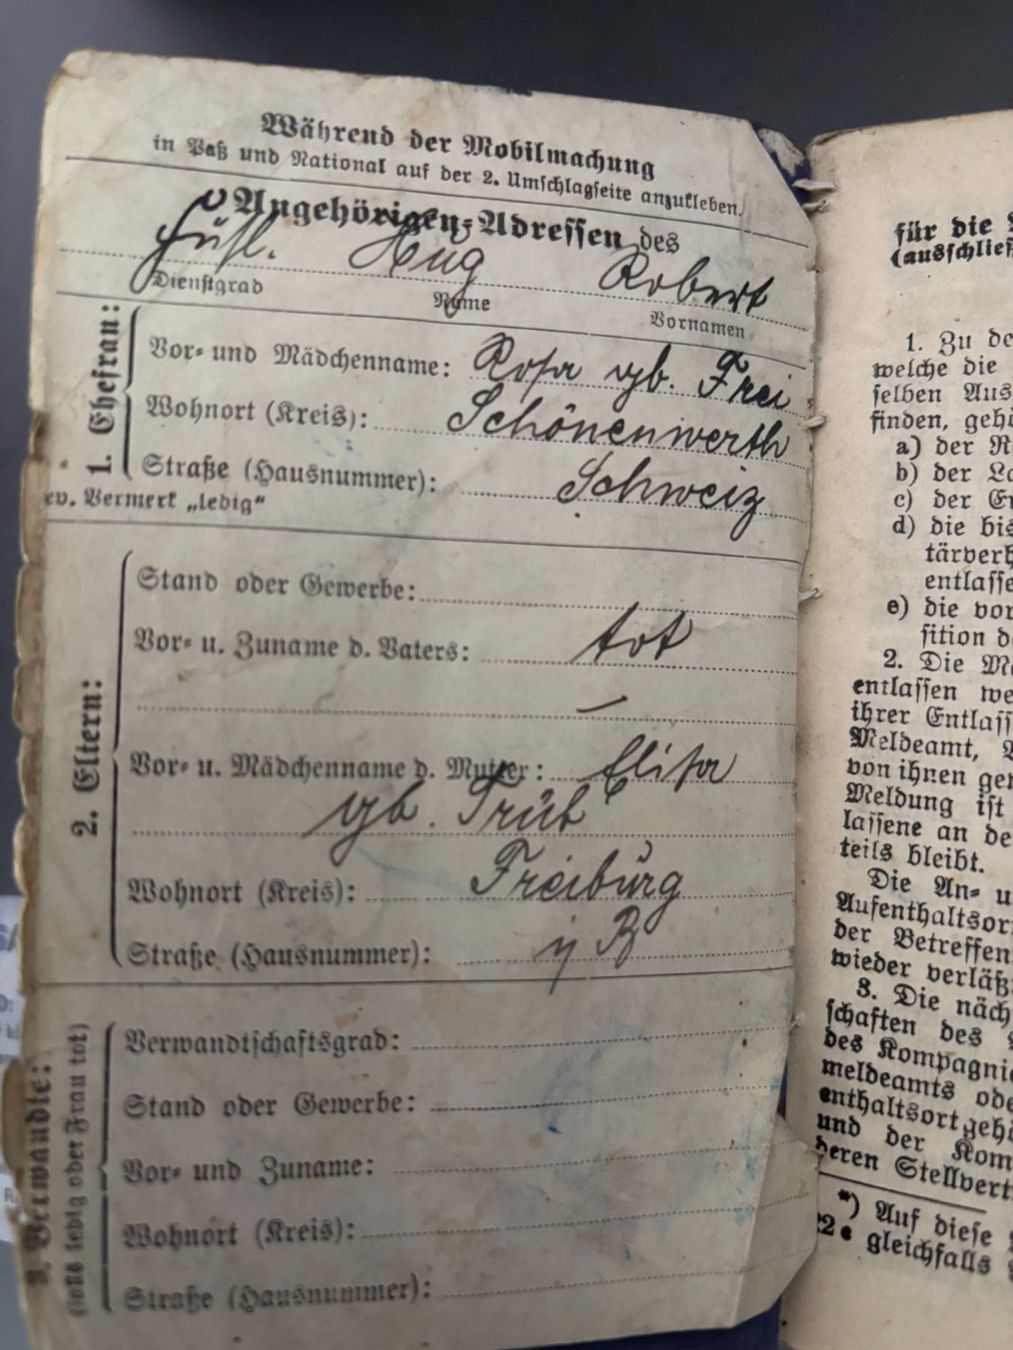 Während der Mobilmachung
in Paß und National auf der 2. Umschlagseite anzukleben.
Angehörigen-Adressen des
Füsl. Hug Robert
Dienstgrad Name Vornamen
1. Ehefrau:
Vor- und Mädchenname: Rosa gb. Frei
Wohnort (Kreis): Schönenwerth
Straße (Hausnummer): Schweiz
ev. Vermerk „ledig“
2. Eltern:
Stand oder Gewerbe:
Vor- u. Zuname d. Vaters: tot
—
Vor- u. Mädchenname d. Mutter: Elisa
gb. Trüb
Wohnort (Kreis): Freiburg
Straße (Hausnummer): i/B
3. Verwandte:
(falls ledig oder Frau tot)
Verwandtschaftsgrad:
Stand oder Gewerbe:
Vor- und Zuname:
Wohnort (Kreis):
Straße (Hausnummer):
für die
(ausschließ
1. Zu de
welche die
selben Aus
finden, gehö
a) der R
b) der La
c) der Er
d) die bis
tärverh
entlasse
e) die vor
sition d
2. Die M
entlassen we
ihrer Entlass
Meldeamt,
von ihnen ge
Meldung ist
lassene an de
teils bleibt.
Die An- u
Aufenthaltsor
der Betreffen
wieder verläßt
3. Die näch
schaften des
des Kompagnie
meldeamts ode
enthaltsort gehö
und der Kom
deren Stellvert
*) Auf diese
22 e gleichfalls